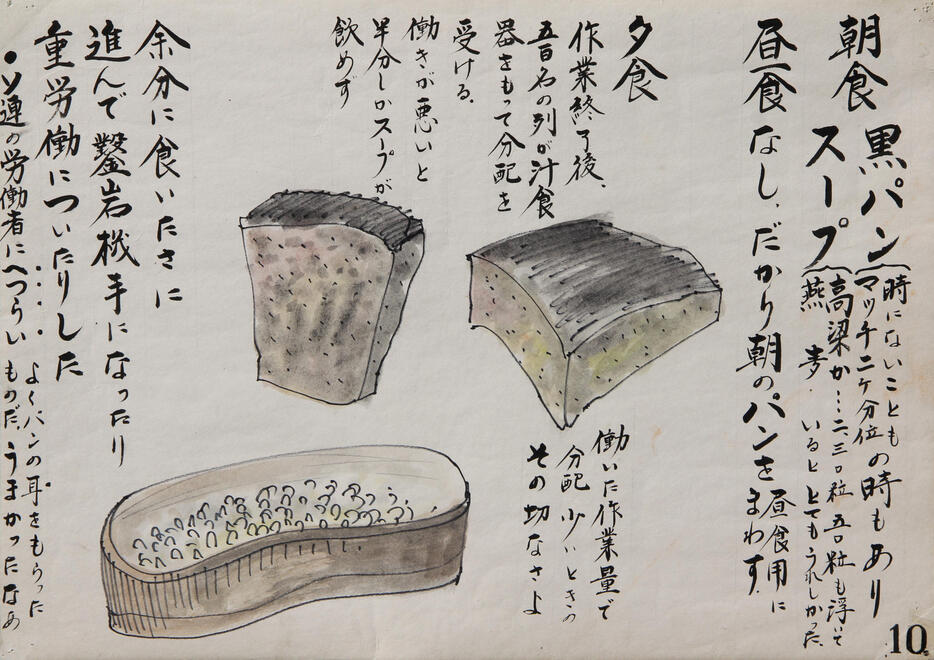 朝食 黒パン
時にないことも
マッチ二ケ分位の時もあり
スープ
高梁か…二、三〇粒 五〇粒も浮いて
燕麦 いるととてもうれしかった、
昼食 なし、だかり朝のパンを
昼食用に
まわす
夕食
作業終了後、
五百名の列が汁食
器をもって分配を
受ける。
働きが悪いと
半分しかスープが
飲めず
働いた作業量で
分配 少いときの
その切なさよ
余分に食いたさに
進んで鑿岩機手になったり
重労働についたりした
•ソ連の労働者にへつらい
よくパンの耳をもらった
ものだ、うまかったなあ
10